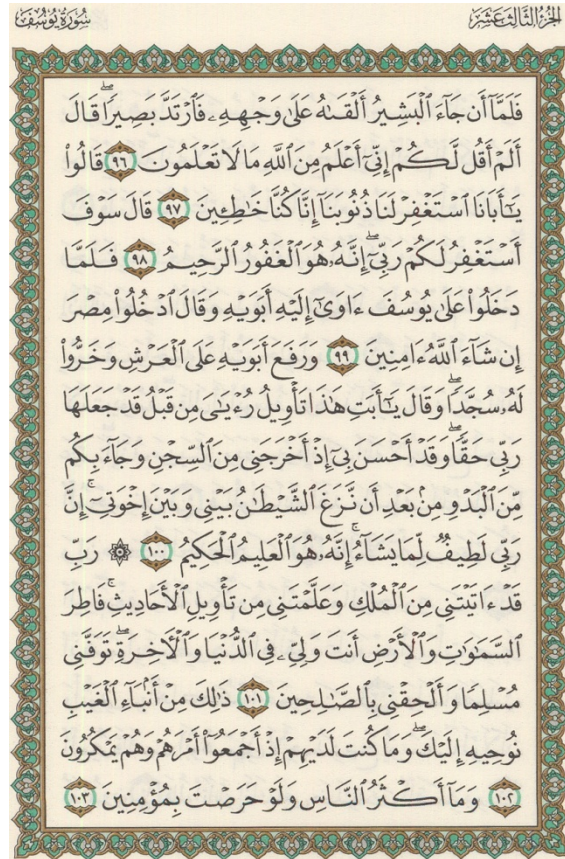 الجزء الثالث عشر
سورة يوسف
فَلَمَّآ أَن جَآءَ ٱلْبَشِيرُ أَلْقَىٰهُ عَلَىٰ وَجْهِهِۦ فَٱرْتَدَّ بَصِيرًاۖ قَالَ
أَلَمْ أَقُل لَّكُمْ إِنِّىٓ أَعْلَمُ مِنَ ٱللَّهِ مَا لَا تَعْلَمُونَ ٩٦ قَالُوا۟
يَـٰٓأَبَانَا ٱسْتَغْفِرْ لَنَا ذُنُوبَنَآ إِنَّا كُنَّا خَـٰطِـِٔينَ ٩٧ قَالَ سَوْفَ
أَسْتَغْفِرُ لَكُمْ رَبِّىٓۖ إِنَّهُۥ هُوَ ٱلْغَفُورُ ٱلرَّحِيمُ ٩٨ فَلَمَّا
دَخَلُوا۟ عَلَىٰ يُوسُفَ ءَاوَىٰٓ إِلَيْهِ أَبَوَيْهِ وَقَالَ ٱدْخُلُوا۟ مِصْرَ
إِن شَآءَ ٱللَّهُ ءَامِنِينَ ٩٩ وَرَفَعَ أَبَوَيْهِ عَلَى ٱلْعَرْشِ وَخَرُّوا۟
لَهُۥ سُجَّدًاۖ وَقَالَ يَـٰٓأَبَتِ هَـٰذَا تَأْوِيلُ رُءْيَـٰىَ مِن قَبْلُ قَدْ جَعَلَهَا
رَبِّى حَقًّاۖ وَقَدْ أَحْسَنَ بِىٓ إِذْ أَخْرَجَنِى مِنَ ٱلسِّجْنِ وَجَآءَ بِكُم
مِّنَ ٱلْبَدْوِ مِنۢ بَعْدِ أَن نَّزَغَ ٱلشَّيْطَـٰنُ بَيْنِى وَبَيْنَ إِخْوَتِىٓۚ إِنَّ
رَبِّى لَطِيفٌ لِّمَا يَشَآءُۚ إِنَّهُۥ هُوَ ٱلْعَلِيمُ ٱلْحَكِيمُ ١٠٠ ۞ رَبِّ
قَدْ ءَاتَيْتَنِى مِنَ ٱلْمُلْكِ وَعَلَّمْتَنِى مِن تَأْوِيلِ ٱلْأَحَادِيثِۚ فَاطِرَ
ٱلسَّمَـٰوَٰتِ وَٱلْأَرْضِ أَنتَ وَلِىِّۦ فِى ٱلدُّنْيَا وَٱلْـَٔاخِرَةِۖ تَوَفَّنِى
مُسْلِمًا وَأَلْحِقْنِى بِٱلصَّـٰلِحِينَ ١٠١ ذَٰلِكَ مِنْ أَنۢبَآءِ ٱلْغَيْبِ
نُوحِيهِ إِلَيْكَۖ وَمَا كُنتَ لَدَيْهِمْ إِذْ أَجْمَعُوٓا۟ أَمْرَهُمْ وَهُمْ يَمْكُرُونَ
١٠٢ وَمَآ أَكْثَرُ ٱلنَّاسِ وَلَوْ حَرَصْتَ بِمُؤْمِنِينَ ١٠٣